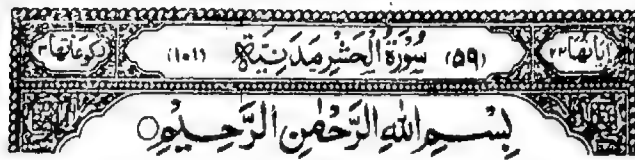 اٰیاتها ۲۴ (۵۹) سُوْرَةُ الْحَشْرِ مَدَنِیَّةٌ (۱۰۱) رکوعاتها ۳
بِسْمِ اللّٰهِ الرَّحْمٰنِ الرَّحِیْمِ